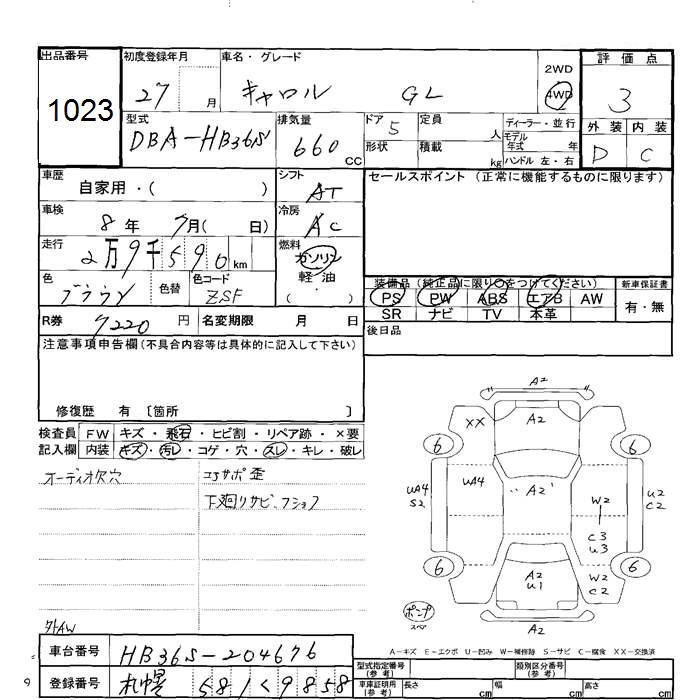 出品番号 初度登録年月 車名・グレード 2WD 評価点
1023 27 月 キャロル GL 4WD 3
型式 排気量 ドア 5 定員 人 ディーラー・並行 外装 内装
DBA-HB36S 660 CC 形状 積載 kg モデル年式 年 D C
ハンドル 左・右
車歴 シフト セールスポイント (正常に機能するものに限ります)
自家用・( ) AT
車検 8年 7月( 日) 冷房 AC
走行 2万9千590km 燃料 ガソリン
軽・油
( )
色 ブラウン 色替 色コード ZSF 装備品(純正品に限り○をつけてください) 新車保証書
PS PW ABS エアB AW 有・無
R券 7220 円 名変期限 月 日 SR ナビ TV 本革
注意事項申告欄(不具合内容等は具体的に記入して下さい) 後日品
修復歴 有 〔箇所 〕
検査員 FW キズ・飛石・ヒビ割・リペア跡・×要
記入欄 内装 キズ・汚レ・コゲ・穴・スレ・キレ・破レ
オーディオ欠穴 コアサポ歪
下廻りサビ、フショク
A2
XX A2
6 6
UA4 S2 UA4 A2 W2 U2 C2
C3 U3
6 A2 U1 W2 C2 6
ポンプ スペア A2
外AW
A-キズ E-エクボ U-凹み W-補修跡 S-サビ C-腐食 XX-交換済
車台番号 HB36S-204676
型式指定番号(参考) 類別区分番号(参考)
登録番号 札幌 581く9858
車庫証明用(参考) 長さ cm 幅 cm 高さ cm
9